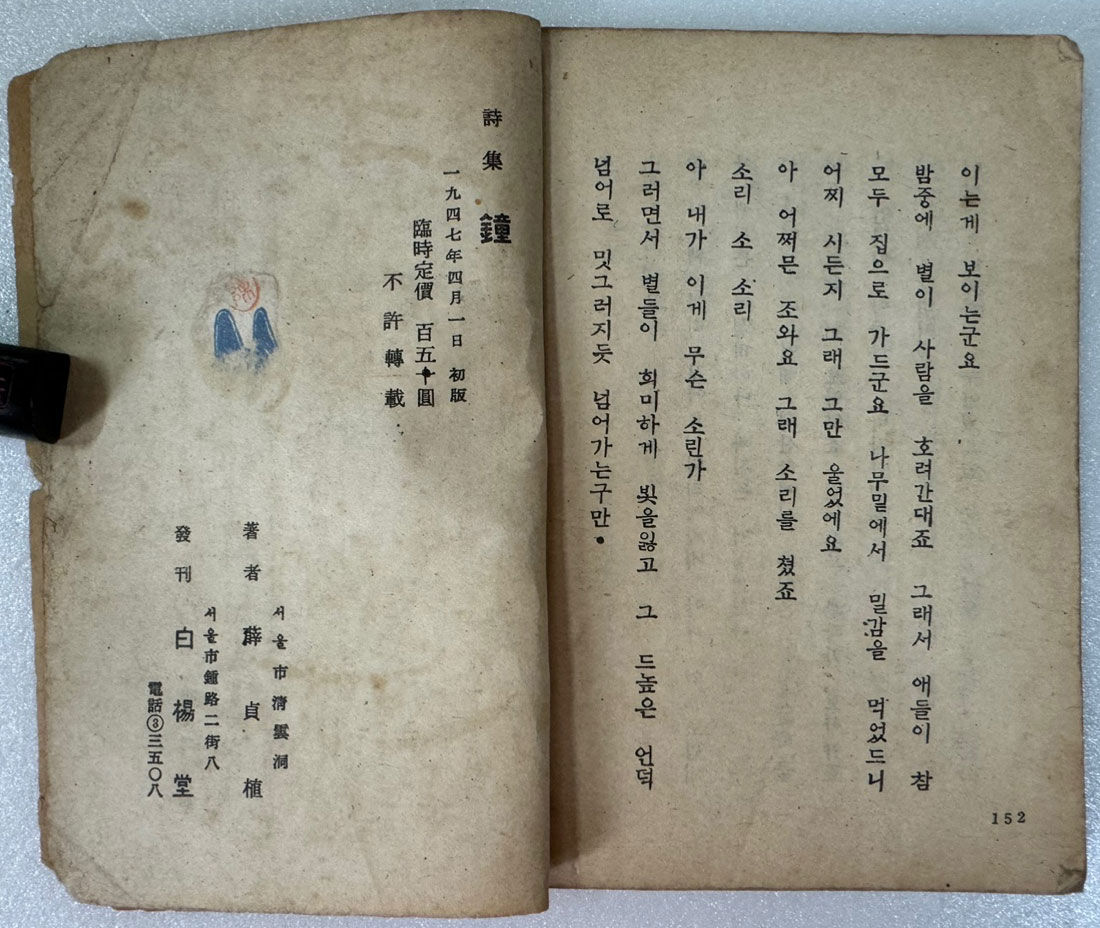 이는게 보이는군요
밤중에 별이 사람을 호려간대죠 그래서 애들이 참
모두 집으로 가드군요 나무밑에서 밀감을 먹었드니
어찌 시든지 그래 그만 울었에요
아 어쩌믄 조와요 그래 소리를 쳤죠
소리 소 소리
아 내가 이게 무슨 소린가
그러면서 별들이 희미하게 빛을잃고 그 드높은 언덕
넘어로 밋그러지듯 넘어가는구만.
152
詩集 鐘
一九四七年四月一日 初版
臨時定價 百五十圓
不許轉載
서울市清雲洞
著者 薛貞植
서울市鍾路二街八
發刊 白楊堂
電話③三五〇八